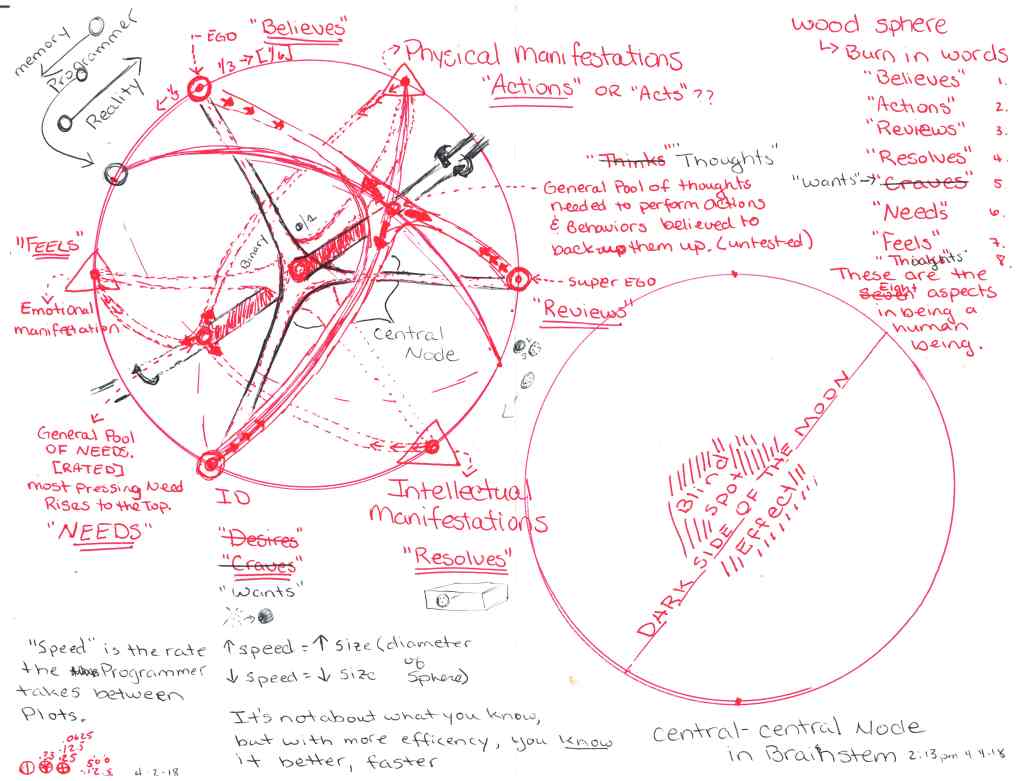 memory
Programmer
Reality
EGO
"Believes"
1/3 → [1/6]
1/3
Physical Manifestations
"Actions" OR "Acts"??
"Thinks" "Thoughts"
General Pool of thoughts
needed to perform actions
& Behaviors believed to
back up them up. (untested)
wood sphere
Burn in words
"Believes" 1.
"Actions" 2.
"Reviews" 3.
"Resolves" 4.
"wants" → "Craves" 5
"Needs" 6.
"Feels" 7.
"Thoughts" 8.
These are the
seven Eight aspects
in being a
human
being.
"FEELS"
Emotional
manifestation
Binary
0/1
Super EGO
"Reviews"
Central
Node
General Pool
OF NEEDS.
[RATED]
most Pressing Need
Rises to the Top.
"NEEDS"
ID
"Desires"
"Craves"
"Wants"
Intellectual
Manifestations
"Resolves"
Blind
Spot
DARK SIDE OF THE MOON
Effect
"Speed" is the rate
the Programmer
takes between
Plots.
↑ speed = ↑ size (diameter
of
↓ speed = ↓ size sphere)
It's not about what you know,
but with more efficency, you know
it better, faster
.0625
.125
.25
500
.125
4-2-18
Central-central Node
in Brainstem 2:13pm 4-4-18